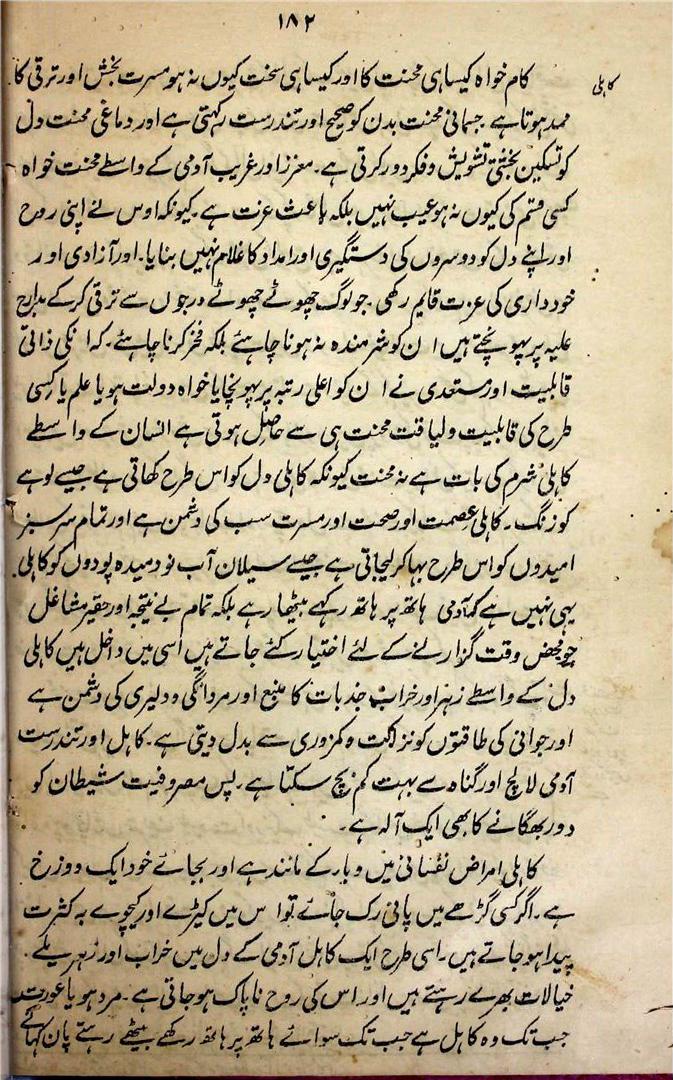 ۱۸۲
کاہلی
کام خواہ کیسا ہی محنت کا اور کیسا ہی سخت کیوں نہ ہو مسرت بخش اور ترقی کا
ممد ہوتا ہے جسمانی محنت بدن کو صحیح اور تندرست رکہتی ہے اور دماغی محنت دل
کو تسکین بخشتی تشویش و فکر دور کرتی ہے۔ معزز اور غریب آدمی کے واسطے محنت خواہ
کسی قسم کی کیوں نہ ہو عیب نہیں بلکہ باعث عزت ہے۔ کیونکہ اوس نے اپنی روح
اور اپنے دل کو دوسروں کی دستگیری اور امداد کا غلام نہیں بنایا۔ اور آزادی اور
خود داری کی عزت قایم رکھی۔ جو لوگ چھوٹے چھوٹے درجوں سے ترقی کر کے مدارج
علیہ پر پہونچتے ہیں ان کو شرمندہ نہ ہونا چاہئے بلکہ فخر کرنا چاہئے۔ کہ انکی ذاتی
قابلیت اور مستعدی نے ان کو اعلی رتبہ پر پہونچایا خواہ دولت ہو یا علم یا کسی
طرح کی قابلیت ولیاقت محنت ہی سے حاصل ہوتی ہے انسان کے واسطے
کاہلی شرم کی بات ہے نہ محنت کیونکہ کاہلی دل کو اس طرح کھاتی ہے جیسے لوہے
کو زنگ۔ کاہلی عصمت اور صحت اور مسرت سب کی دشمن ہے اور تمام سرسبز
امیدوں کو اس طرح بہا کر لیجاتی ہے جیسے سیلان آب نودمیدہ پودوں کو کاہلی
یہی نہیں ہے کہ آدمی ہاتھ پر ہاتھ رکہے بیٹھا رہے بلکہ تمام بے نتیجہ اور حقیر مشاغل
جو محض وقت گزارنے کے لئے اختیار کئے جاتے ہیں اسی میں داخل ہیں کاہلی
دل کے واسطے زہر اور خراب جذبات کا منبع اور مردانگی و دلیری کی دشمن ہے
اور جوانی کی طاقتوں کو نزاکت و کمزوری سے بدل دیتی ہے۔ کاہل اور تندرست
آدمی لالچ اور گناہ سے بہت کم بچ سکتا ہے۔ پس مصروفیت شیطان کو
دور بھگانے کا بھی ایک آلہ ہے۔
کاہلی امراض نفسانی میں وبا کے مانند ہے اور بجائے خود ایک دوزخ
ہے۔ اگر کسی گڑھے میں پانی رک جائے تو اس میں کیڑے اور کیچوے بہ کثرت
پیدا ہو جاتے ہیں۔ اسی طرح ایک کاہل آدمی کے دل میں خراب اور زہریلے
خیالات بھرے رہتے ہیں اور اس کی روح ناپاک ہو جاتی ہے۔ مرد ہو یا عورت
جب تک وہ کاہل ہے جب تک سوائے ہاتھ پر ہاتھ رکھے بیٹھے رہتے پان کہائے